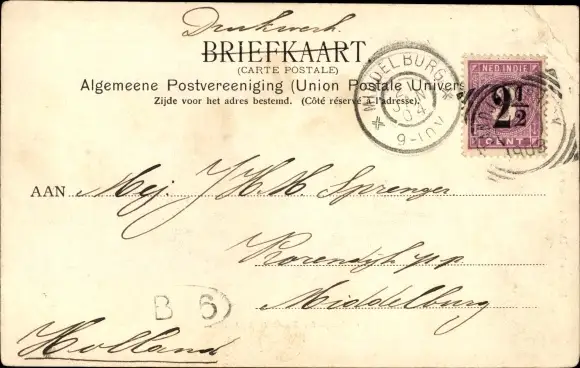 Drukwerk.
BRIEFKAART
(CARTE POSTALE)
Algemeene Postvereeniging (Union Postale Univers
Zijde voor het adres bestemd. (Côté réservé à l'adresse).
MIDDELBURG
04
9-10V
NED-INDIE
2 1/2
CENT
1903
AAN Mej. J H M Sprenger
p.p.
Middelburg
B 6
Holland